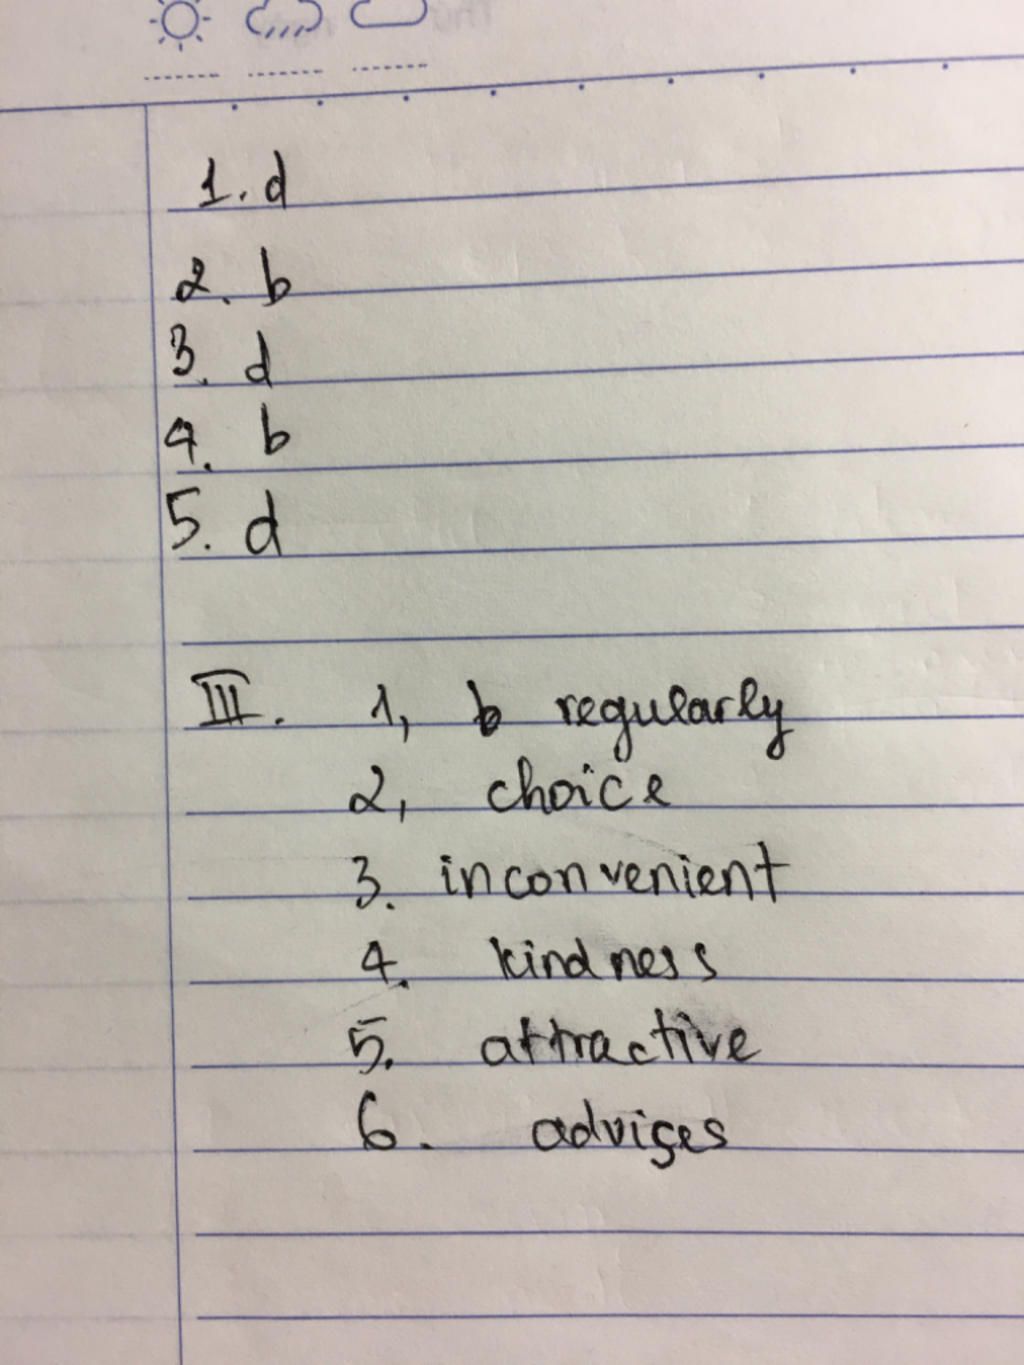 1. d
2. b
3. d
4. b
5. d
III. 1, b regularly
2, choice
3. inconvenient
4. kindness
5. attractive
6. advises